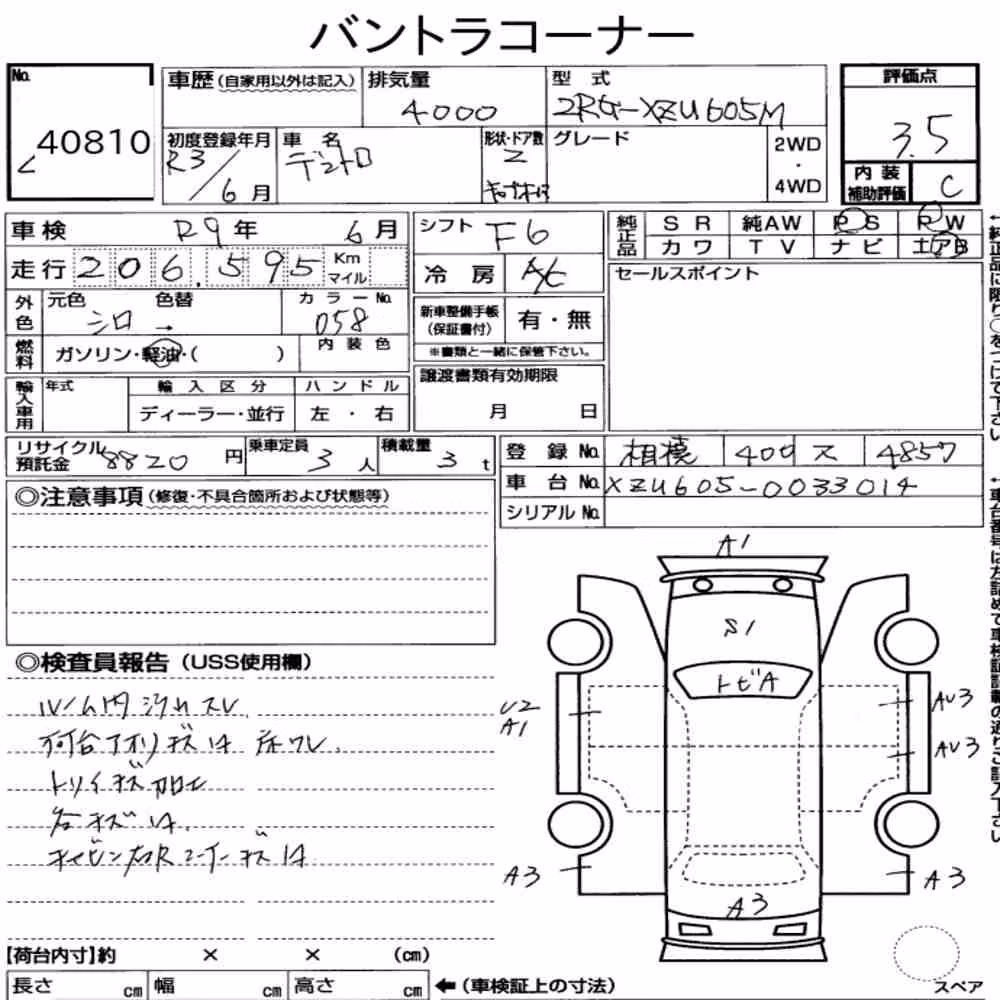 バントラコーナー
No. 40810
車歴 (自家用以外は記入)
排気量 4000
型式 2RG-XZU605M
評価点 3.5
初度登録年月 R3/6月
車名 デュトロ
形状・ドア数 2
グレード
2WD・4WD
内装補助評価 C
車検 R9年 6月
シフト F6
純正品 SR 純AW PS PW
カワ TV ナビ エアB
走行 206,595 Km マイル
冷房 A/C
セールスポイント
外色 元色 シロ → 色替
カラーNo. 058
新車整備手帳(保証書付) 有・無
※書類と一緒に保管下さい。
燃料 ガソリン・軽油・( )
内装色
譲渡書類有効期限
月 日
輸入車用 年式
輸入区分 ディーラー・並行
ハンドル 左・右
リサイクル預託金 8820円
乗車定員 3人
積載量 3t
登録No. 相模 400 ス 4857
車台No. XZU605-0033014
シリアルNo.
◎注意事項 (修復・不具合箇所および状態等)
◎検査員報告 (USS使用欄)
ルーム内 汚れ スレ
荷台アオリ キズ 凹 床ワレ
トリイ キズ
各キズ 凹
キャビン右Rコーナー キズ 凹
A1
S1
トビA
U2
A1
AU3
AU3
A3
A3
A3
【荷台内寸】約 × × (cm)
長さ cm 幅 cm 高さ cm ←(車検証上の寸法)
スペア
←純正品に限り○をつけて下さい
←車台番号は左詰めで車検証記載の通りご記入下さい